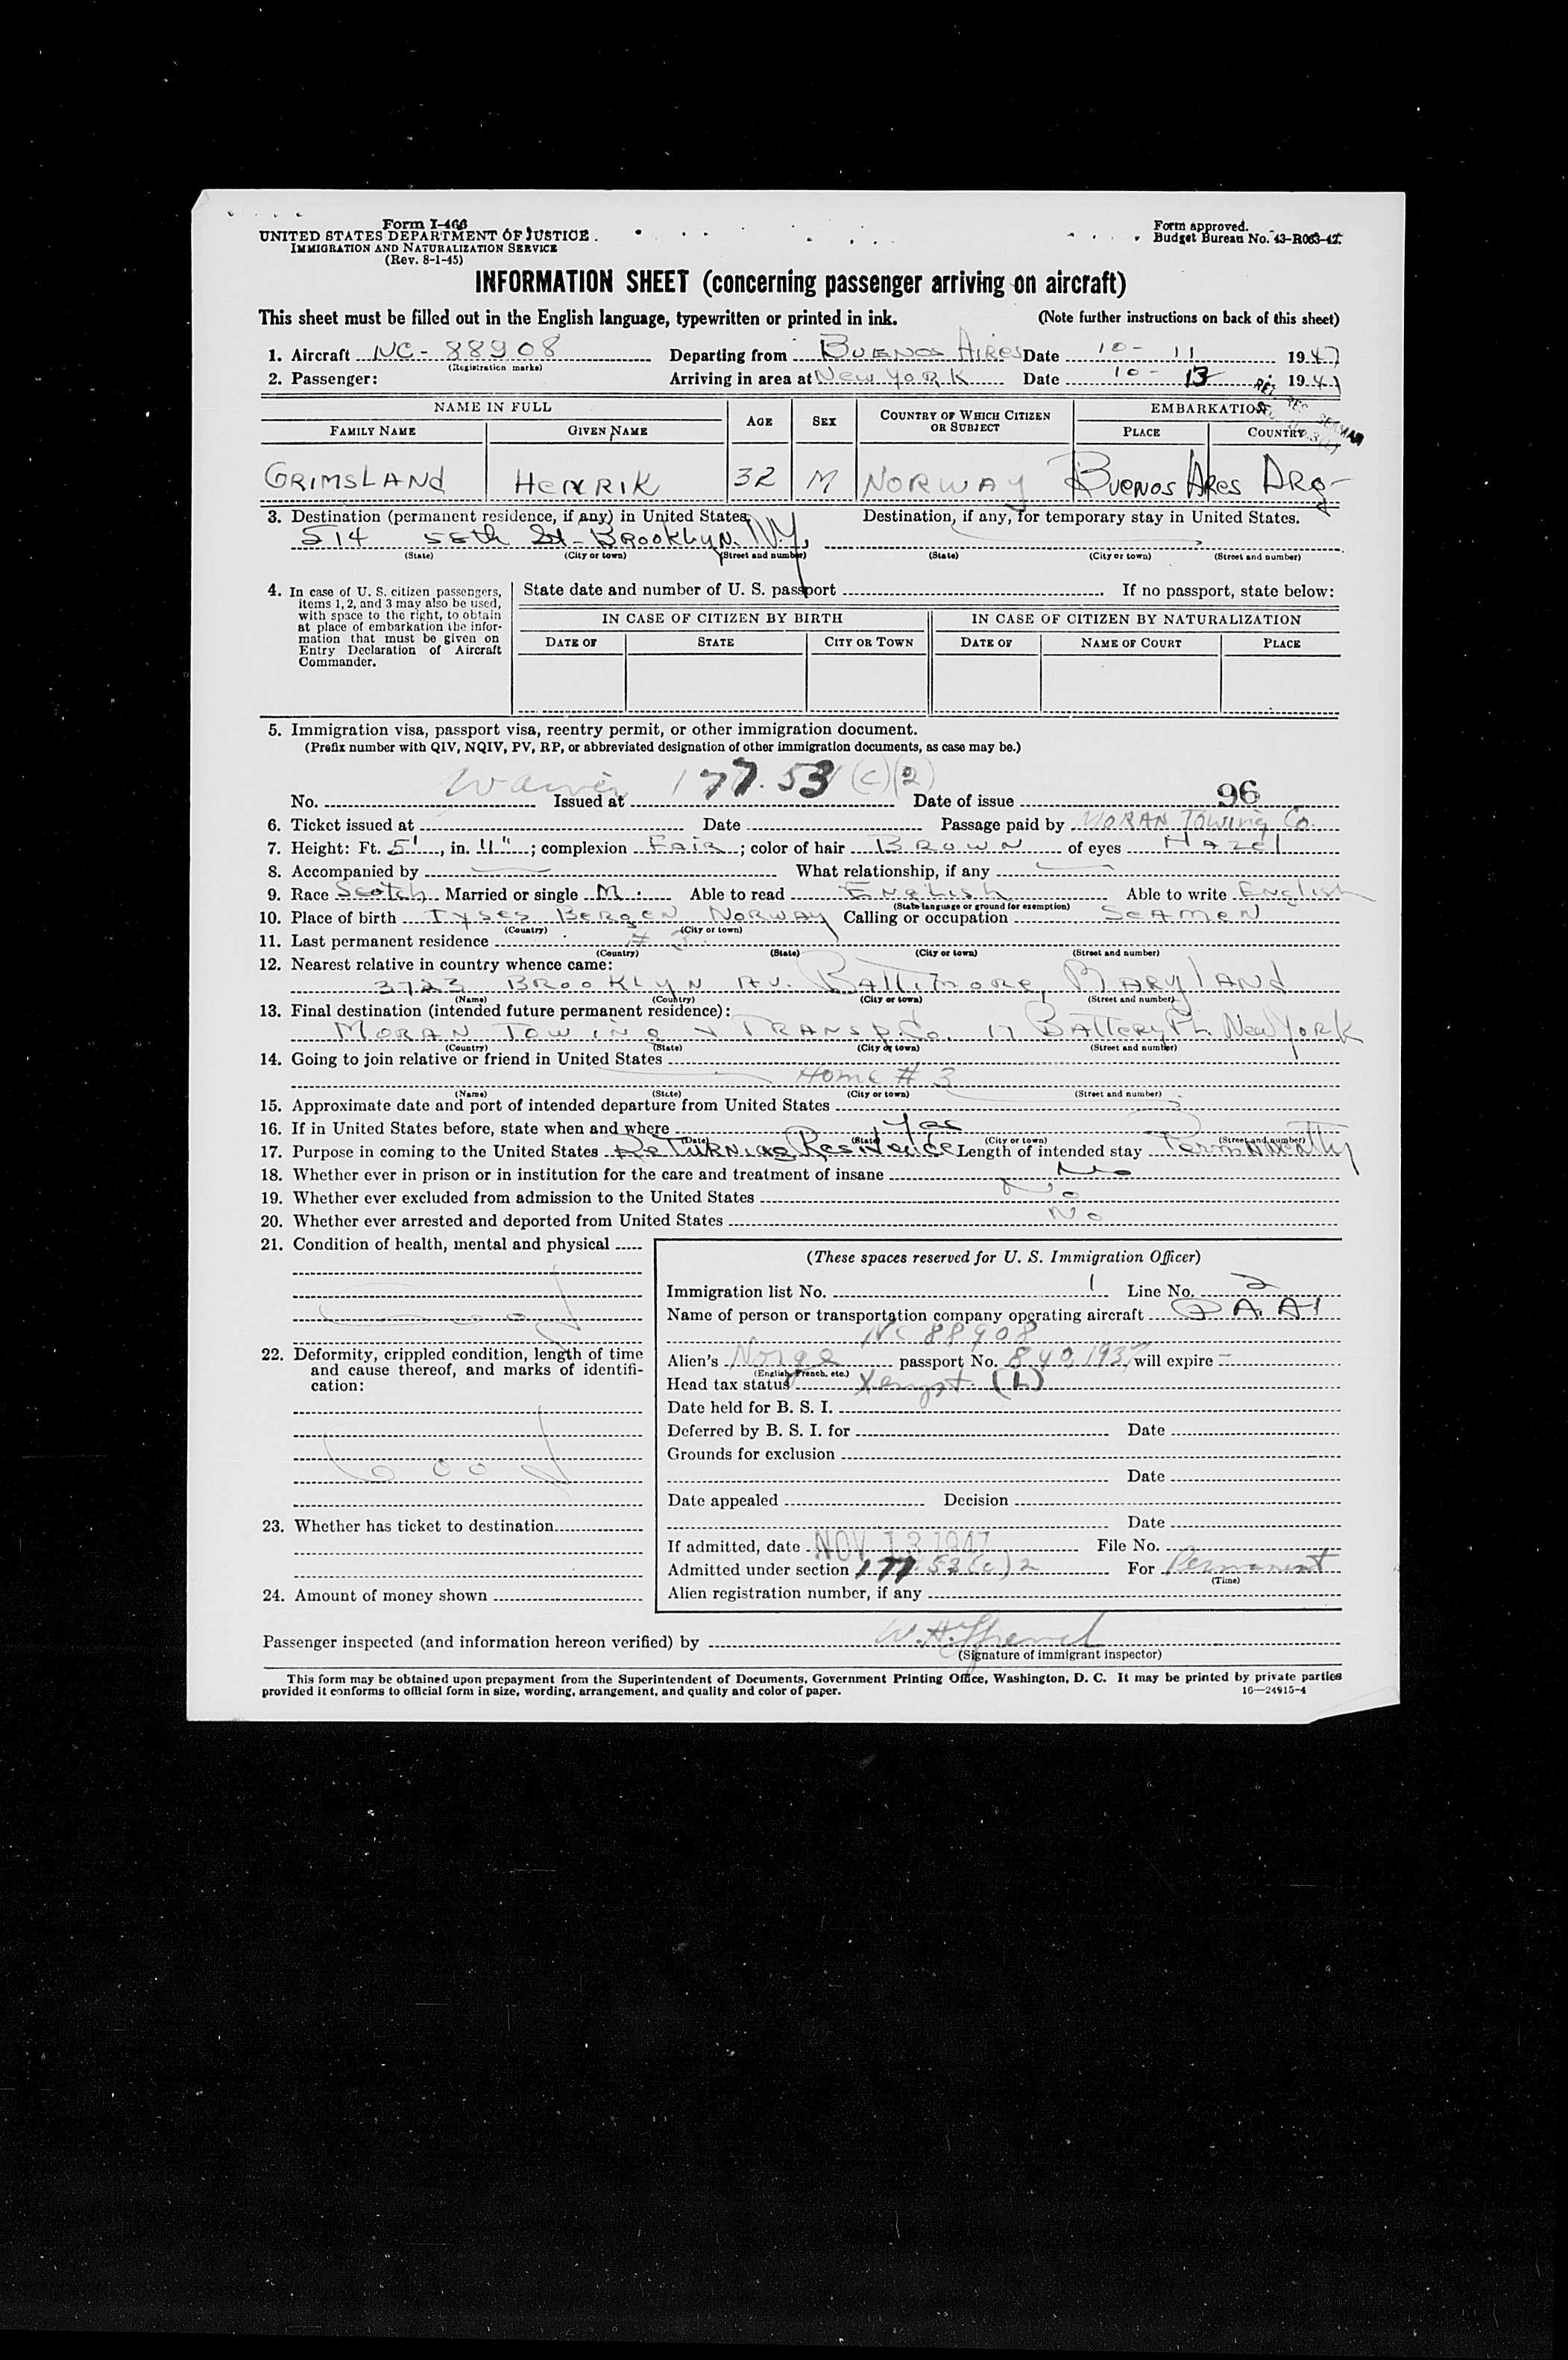 Form I-466
UNITED STATES DEPARTMENT OF JUSTICE
IMMIGRATION AND NATURALIZATION SERVICE
(Rev. 8-1-45)
Form approved.
Budget Bureau No. 43-R063-42.
INFORMATION SHEET (concerning passenger arriving on aircraft)
This sheet must be filled out in the English language, typewritten or printed in ink. (Note further instructions on back of this sheet)
1. Aircraft NC-88908 Departing from BUENOS AIRES Date 10-11 1947
(Registration marks)
2. Passenger: Arriving in area at NEW YORK Date 10-13 1947
NAME IN FULL AGE SEX COUNTRY OF WHICH CITIZEN OR SUBJECT EMBARKATION
FAMILY NAME GIVEN NAME PLACE COUNTRY
GRIMSLAND HENRIK 32 M NORWAY BUENOS AIRES ARG-
3. Destination (permanent residence, if any) in United States. Destination, if any, for temporary stay in United States.
514 55th St- BROOKLYN. N.Y.
(State) (City or town) (Street and number) (State) (City or town) (Street and number)
4. In case of U. S. citizen passengers, items 1, 2, and 3 may also be used, with space to the right, to obtain at place of embarkation the information that must be given on Entry Declaration of Aircraft Commander.
State date and number of U. S. passport If no passport, state below:
IN CASE OF CITIZEN BY BIRTH IN CASE OF CITIZEN BY NATURALIZATION
DATE OF STATE CITY OR TOWN DATE OF NAME OF COURT PLACE
5. Immigration visa, passport visa, reentry permit, or other immigration document.
(Prefix number with QIV, NQIV, PV, RP, or abbreviated designation of other immigration documents, as case may be.)
Waiver 177.53 (c)(2)
No. Issued at Date of issue 96
6. Ticket issued at Date Passage paid by MORAN TOWING Co.
7. Height: Ft. 5', in. 11"; complexion FAIR; color of hair BROWN of eyes HAZEL
8. Accompanied by What relationship, if any
9. Race Scotch Married or single M. Able to read ENGLISH Able to write English
(State language or ground for exemption)
10. Place of birth TYSES BERGEN NORWAY Calling or occupation SEAMEN
(Country) (City or town)
11. Last permanent residence # 3
(Country) (State) (City or town) (Street and number)
12. Nearest relative in country whence came:
3723 BROOKLYN AV. BALTIMORE, MARYLAND
(Name) (Country) (City or town) (Street and number)
13. Final destination (intended future permanent residence):
MORAN TOWING & TRANSP. Co. 17 BATTERY PL. New YORK
(Country) (State) (City or town) (Street and number)
14. Going to join relative or friend in United States
Home # 3
(Name) (State) (City or town) (Street and number)
15. Approximate date and port of intended departure from United States
16. If in United States before, state when and where Yes
(Date) (State) (City or town) (Street and number)
17. Purpose in coming to the United States RETURNING Residence Length of intended stay
18. Whether ever in prison or in institution for the care and treatment of insane No
19. Whether ever excluded from admission to the United States No
20. Whether ever arrested and deported from United States No
21. Condition of health, mental and physical
Good
22. Deformity, crippled condition, length of time and cause thereof, and marks of identification:
Good
23. Whether has ticket to destination
24. Amount of money shown
(These spaces reserved for U. S. Immigration Officer)
Immigration list No. 1 Line No. 2
Name of person or transportation company operating aircraft P.A.A.
NC 88908
Alien's Norge passport No. will expire -
(English, French, etc.)
Head tax status Xempt (L)
Date held for B. S. I.
Deferred by B. S. I. for Date
Grounds for exclusion
Date
Date appealed Decision
Date
If admitted, date NOV 13 1947 File No.
Admitted under section 177.53(c)2 For Permanent
(Time)
Alien registration number, if any
Passenger inspected (and information hereon verified) by
(Signature of immigrant inspector)
This form may be obtained upon prepayment from the Superintendent of Documents, Government Printing Office, Washington, D. C. It may be printed by private parties
provided it conforms to official form in size, wording, arrangement, and quality and color of paper. 16—24915-4